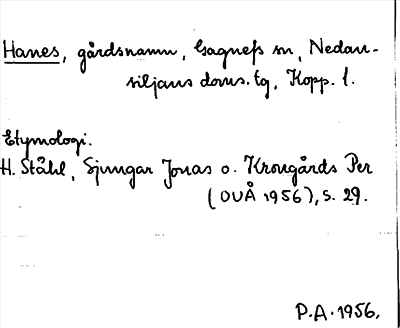 Hanes, gårdsnamn, Gagnefs sn, Nedan-
siljans doms. tg, Kopp. l.
Etymologi.
H. Ståhl, Sjungar Jonas o. Krongårds Per
(OUÅ 1956), s. 29.
P.A. 1956.